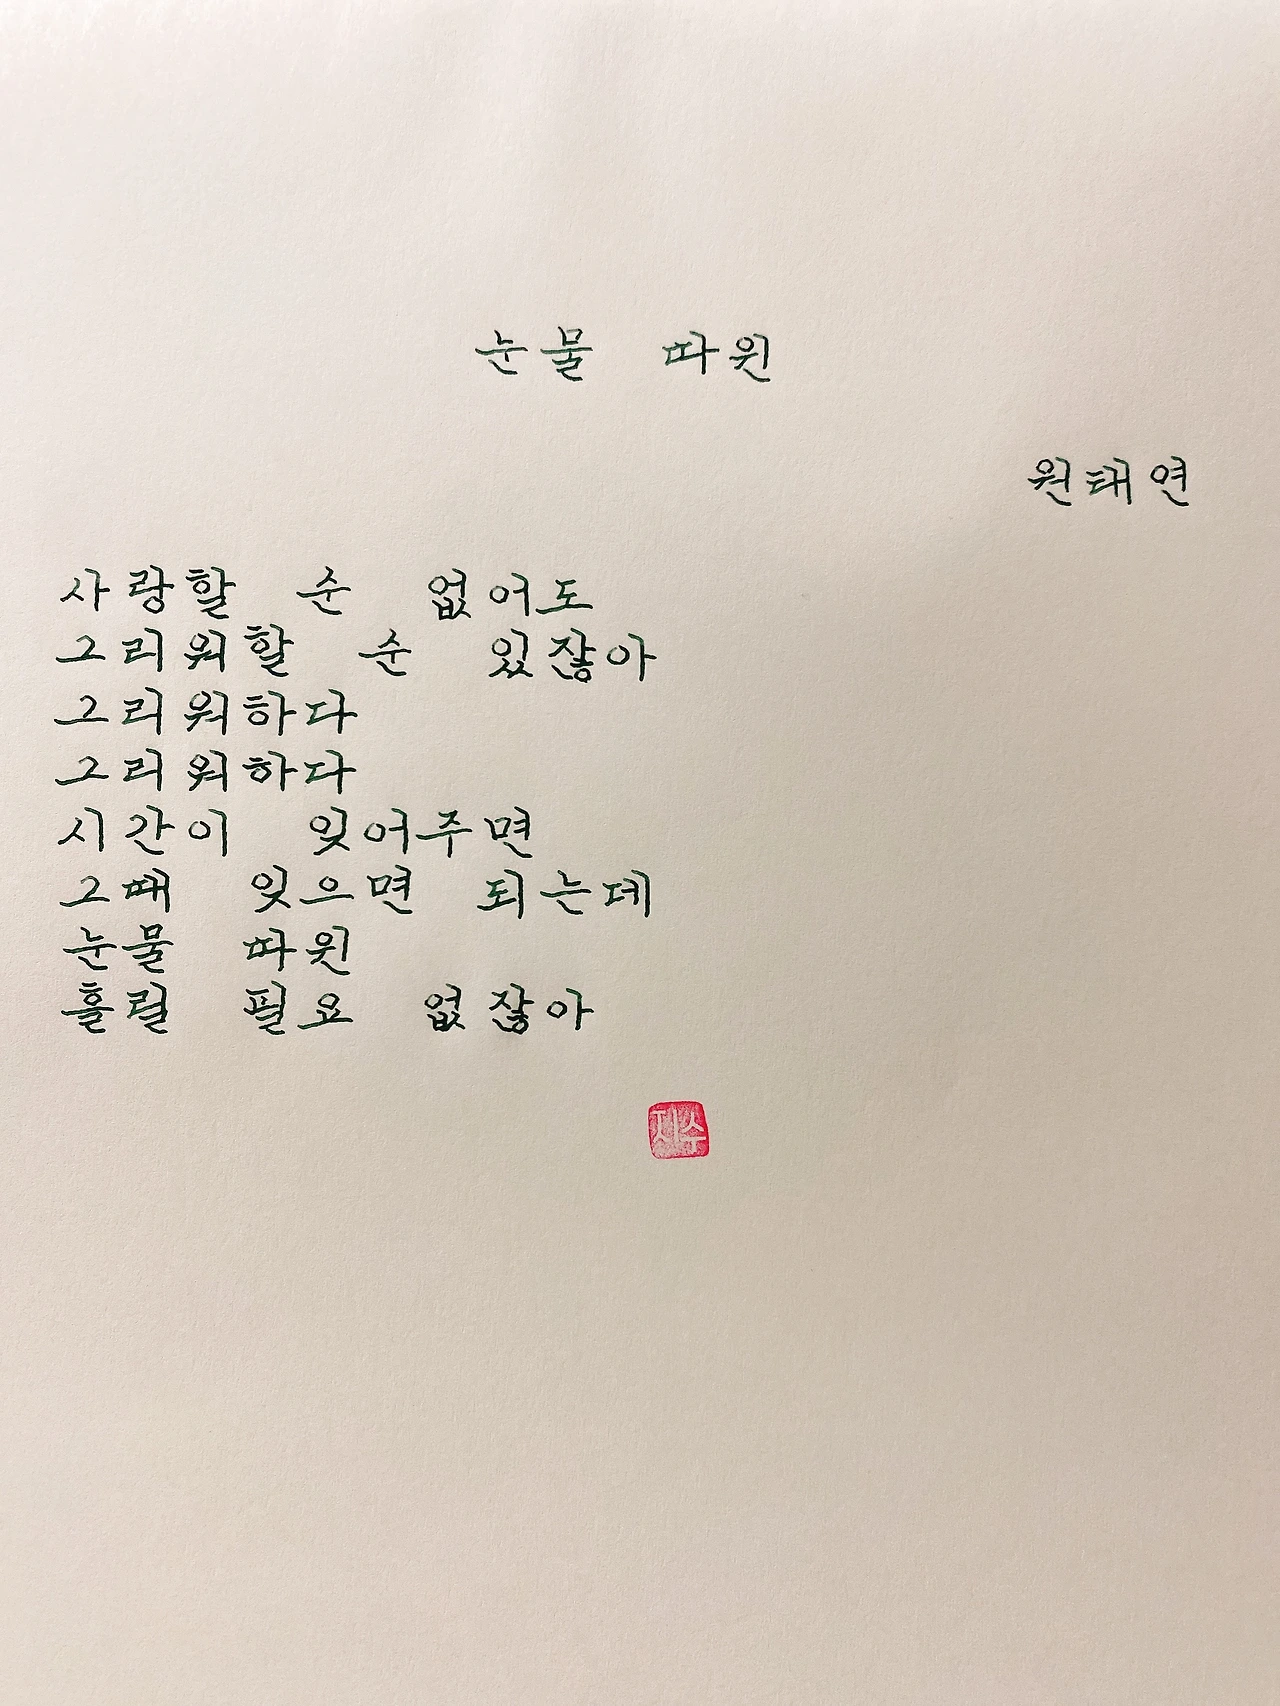 눈물 따윈
원태연
사랑할 순 없어도
그리워할 순 있잖아
그리워하다
그리워하다
시간이 잊어주면
그때 잊으면 되는데
눈물 따윈
흘릴 필요 없잖아
지수